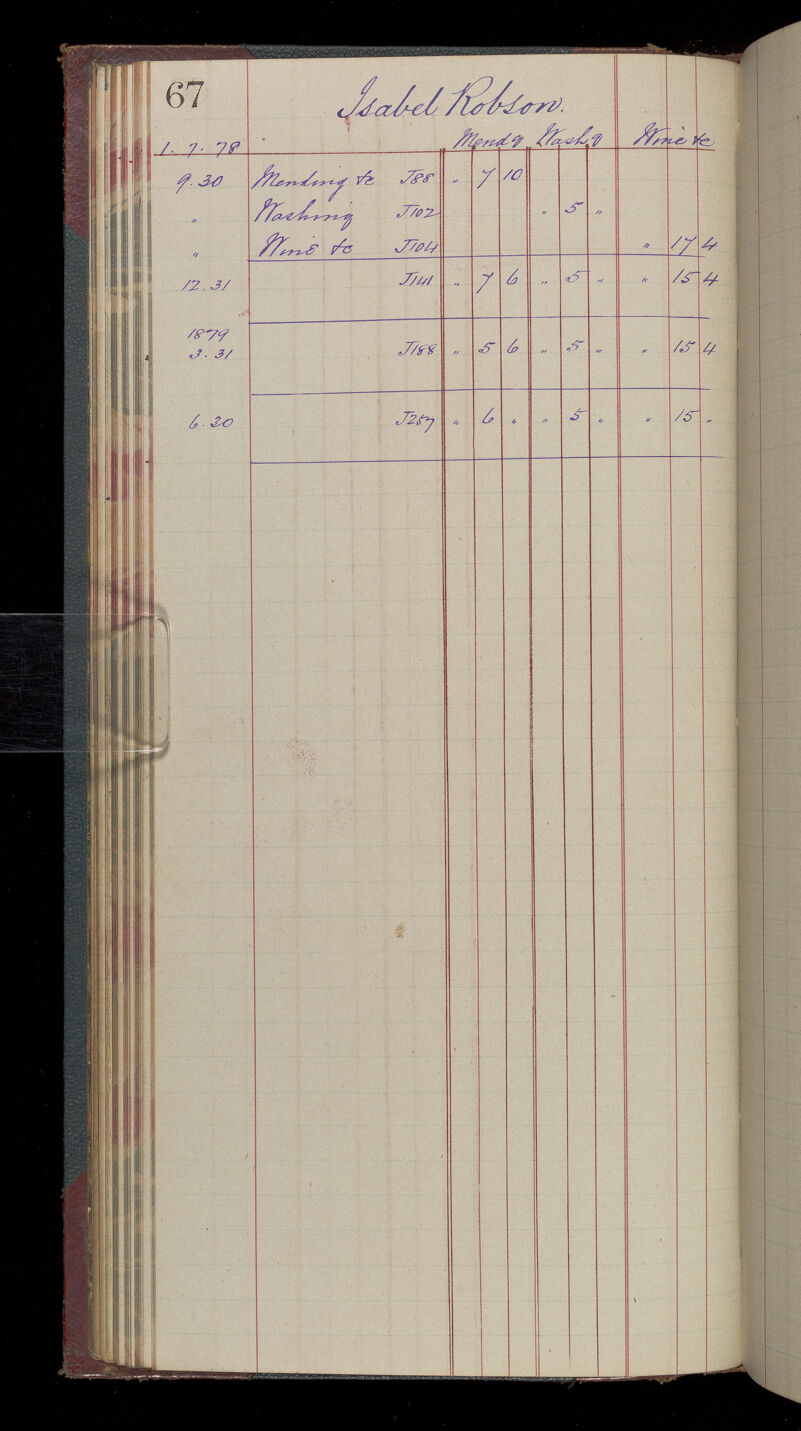 67
Isabel Robson.
1. 7. 78 Mendg Washg Wine &c
9. 30 Mending &c J88 " 7 10
" Washing J102 " 5 "
" Wine &c J104 " 17 4
12. 31 J141 " 7 6 " 5 " " 15 4
1879
3. 31 J188 " 5 6 " 5 " " 15 4
6. 30 J257 " 6 " " 5 " " 15 "